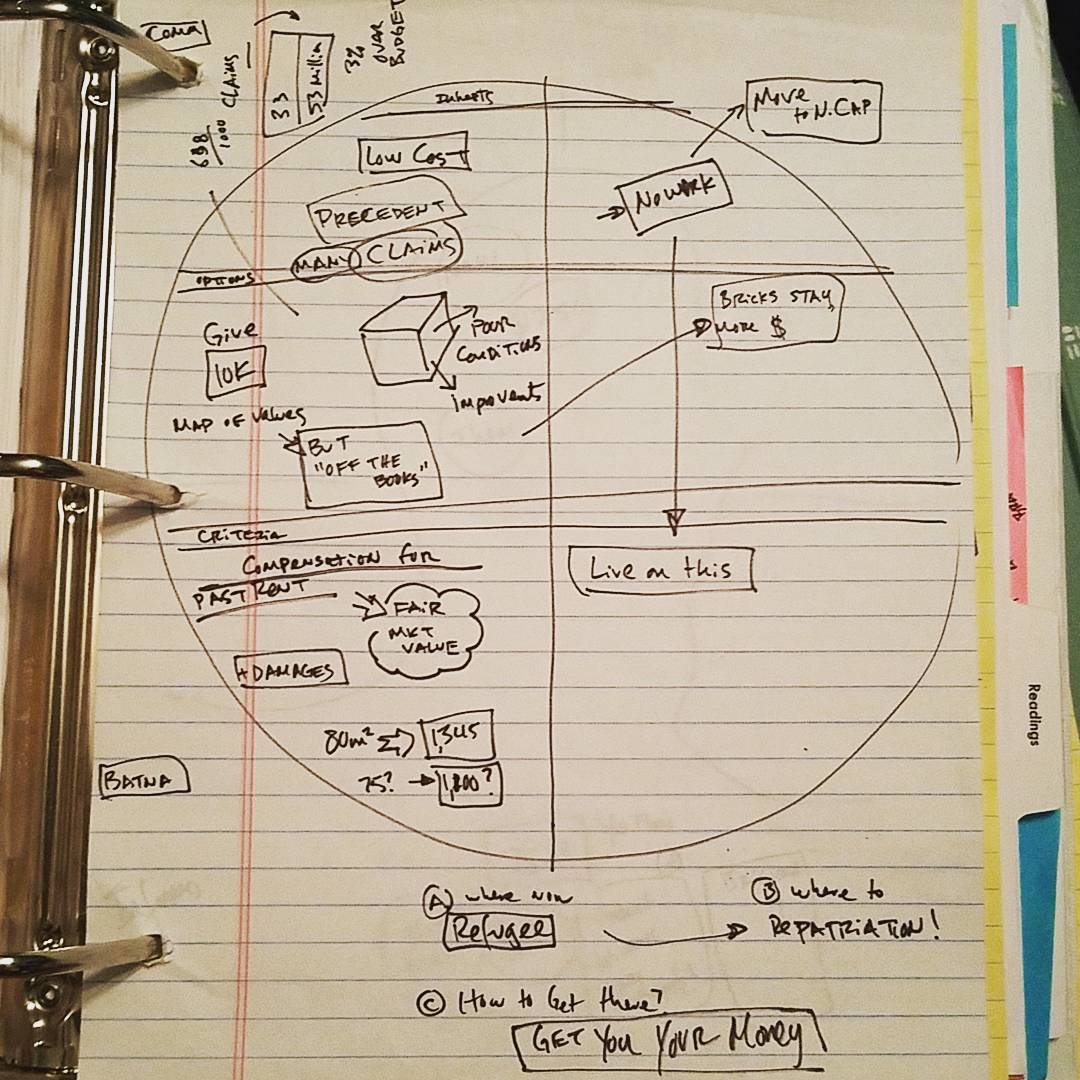 COMA
688/1000 CLAIMS
33 53 Million
3% OVER BUDGET
Move to N.CAP
LOW COST
NO WORK
PRECEDENT
MANY CLAIMS
OPTIONS
BRICKS STAY,
MORE $
Give
10K
POOR
CONDITIONS
MAP OF VALUES
BUT
"OFF THE
BOOKS"
CRITERIA
COMPENSATION FOR
PAST RENT
Live on this
FAIR
MKT
VALUE
+DAMAGES
80m²
1,345
75?
BATNA
A where now
Refugee
B where to
REPATRIATION!
C How to Get there?
GET YOU YOUR MONEY
Readings